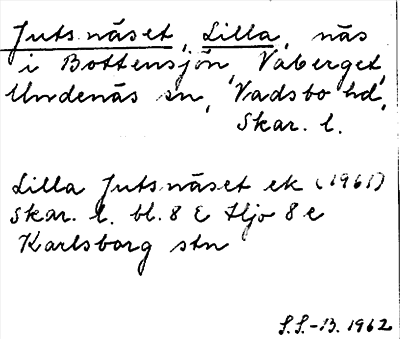 Jutsnäset, Lilla, näs
i Bottensjön, Vaberget,
Undenäs sn, Vadsbo hd,
Skar. l.
Lilla Jutsnäset ek (1961)
Skar. l. bl. 8 E Hjo 8 e
Karlsborg stn
S.S.-B. 1962